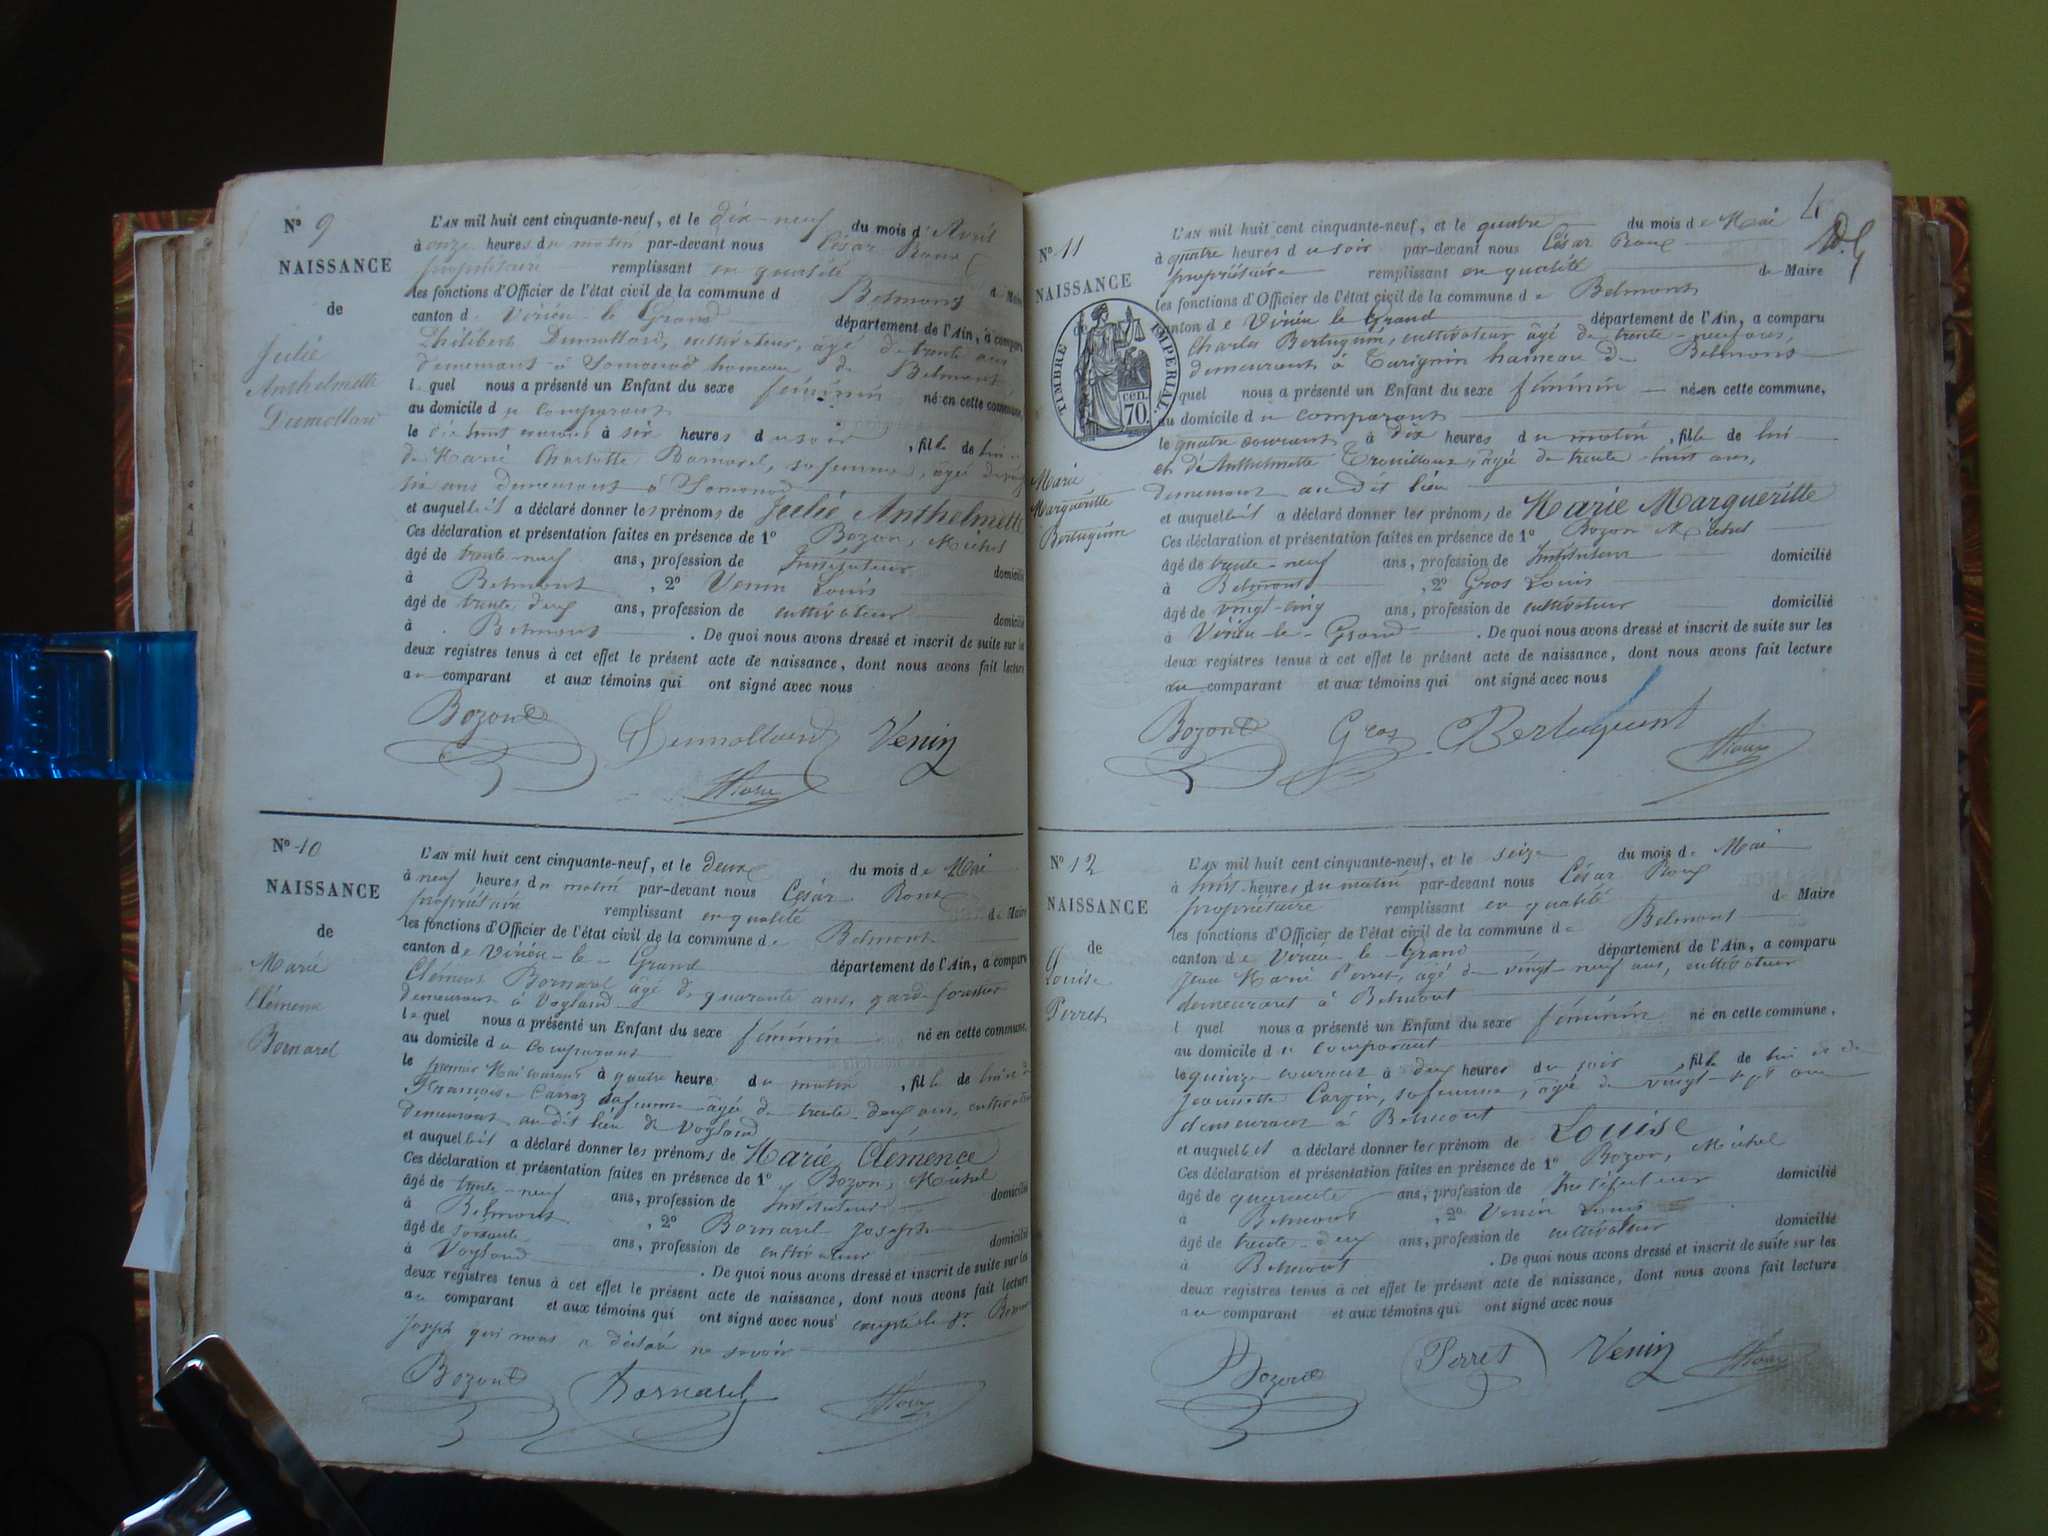 N° 9
NAISSANCE
de
Julie
Anthelmette
Dumollard
L'AN mil huit cent cinquante-neuf, et le dix-neuf du mois d'Avril
à onze heures du matin par-devant nous César Roux
propriétaire remplissant en qualité de Maire
les fonctions d'Officier de l'état civil de la commune d Belmont
canton de Virieu-le Grand département de l'Ain, a comparu
Philibert Dumollard, cultivateur, âgé de trente ans
demeurant à Somonod hameau de Belmont
lequel nous a présenté un Enfant du sexe féminin né en cette commune,
au domicile du comparant
le dix huit courant à six heures du soir, fille de lui
de Marie Charlotte Bornarel, sa femme, âgée de
six ans demeurant à Somonod
et auquel il a déclaré donner les prénoms de Julie Anthelmette
Ces déclaration et présentation faites en présence de 1° Bozon, Michel
âgé de trente-neuf ans, profession de Instituteur domicilié
à Belmont, 2° Venin Louis
âgé de trente deux ans, profession de cultivateur domicilié
à Belmont. De quoi nous avons dressé et inscrit de suite sur les
deux registres tenus à cet effet le présent acte de naissance, dont nous avons fait lecture
au comparant et aux témoins qui ont signé avec nous
Bozon Dumollard Venin
Roux
N° 10
NAISSANCE
de
Marie
Clémence
Bornarel
L'AN mil huit cent cinquante-neuf, et le deux du mois de Mai
à neuf heures du matin par-devant nous César Roux
propriétaire remplissant en qualité de Maire
les fonctions d'Officier de l'état civil de la commune de Belmont
canton de Virieu-le-Grand département de l'Ain, a comparu
Clément Bornarel âgé de quarante ans, garde forestier
demeurant à Vogland
lequel nous a présenté un Enfant du sexe féminin né en cette commune,
au domicile du comparant
le premier Mai courant à quatre heures du matin, fille de lui et de
Françoise Carraz sa femme âgée de trente-deux ans, cultivatrice
demeurant au dit lieu de Vogland
et auquel il a déclaré donner les prénoms de Marie Clémence
Ces déclaration et présentation faites en présence de 1° Bozon, Michel
âgé de trente-neuf ans, profession de Instituteur domicilié
à Belmont, 2° Bornarel Joseph
âgé de soixante ans, profession de cultivateur domicilié
à Vogland. De quoi nous avons dressé et inscrit de suite sur les
deux registres tenus à cet effet le présent acte de naissance, dont nous avons fait lecture
au comparant et aux témoins qui ont signé avec nous excepté le Sr
Joseph qui nous a déclaré ne savoir
Bozon Bornarel Roux
4
N° 11
NAISSANCE
de
TIMBRE IMPERIAL.
70. cen.
Marie
Margueritte
Bertuguin
L'AN mil huit cent cinquante-neuf, et le quatre du mois de Mai
à quatre heures du soir par-devant nous César Roux
propriétaire remplissant en qualité de Maire
les fonctions d'Officier de l'état civil de la commune de Belmont
canton de Virieu le Grand département de l'Ain, a comparu
Charles Bertuguin, cultivateur âgé de trente-neuf ans,
demeurant à Curignin hameau de Belmont
quel nous a présenté un Enfant du sexe féminin né en cette commune,
au domicile du comparant
le quatre courant à dix heures du matin, fille de lui
et d'Anthelmette Trouilloux, âgée de trente-huit ans,
demeurant au dit lieu
et auquel il a déclaré donner les prénoms de Marie Margueritte
Ces déclaration et présentation faites en présence de 1° Bozon Michel
âgé de trente-neuf ans, profession de Instituteur domicilié
à Belmont, 2° Gros Louis
âgé de vingt-cinq ans, profession de cultivateur domicilié
à Virieu-le-Grand. De quoi nous avons dressé et inscrit de suite sur les
deux registres tenus à cet effet le présent acte de naissance, dont nous avons fait lecture
au comparant et aux témoins qui ont signé avec nous
Bozon Gros Bertuguent Roux
N° 12
NAISSANCE
de
Louise
Perret
L'AN mil huit cent cinquante-neuf, et le seize du mois de Mai
à huit heures du matin par-devant nous César Roux
propriétaire remplissant en qualité de Maire
les fonctions d'Officier de l'état civil de la commune de Belmont
canton de Virieu-le-Grand département de l'Ain, a comparu
Jean Marie Perret, âgé de vingt-neuf ans, cultivateur
demeurant à Belmont
l quel nous a présenté un Enfant du sexe féminin né en cette commune,
au domicile du comparant
le quinze courant à deux heures du soir, fille de lui et de
Jeannette Carrin, sa femme, âgée de vingt-sept ans
demeurant à Belmont
et auquel il a déclaré donner les prénom de Louise
Ces déclaration et présentation faites en présence de 1° Bozon, Michel
âgé de quarante ans, profession de Instituteur domicilié
à Belmont, 2° Venin Louis
âgé de trente-deux ans, profession de cultivateur domicilié
à Belmont. De quoi nous avons dressé et inscrit de suite sur les
deux registres tenus à cet effet le présent acte de naissance, dont nous avons fait lecture
au comparant et aux témoins qui ont signé avec nous
Bozon Perret Venin Roux